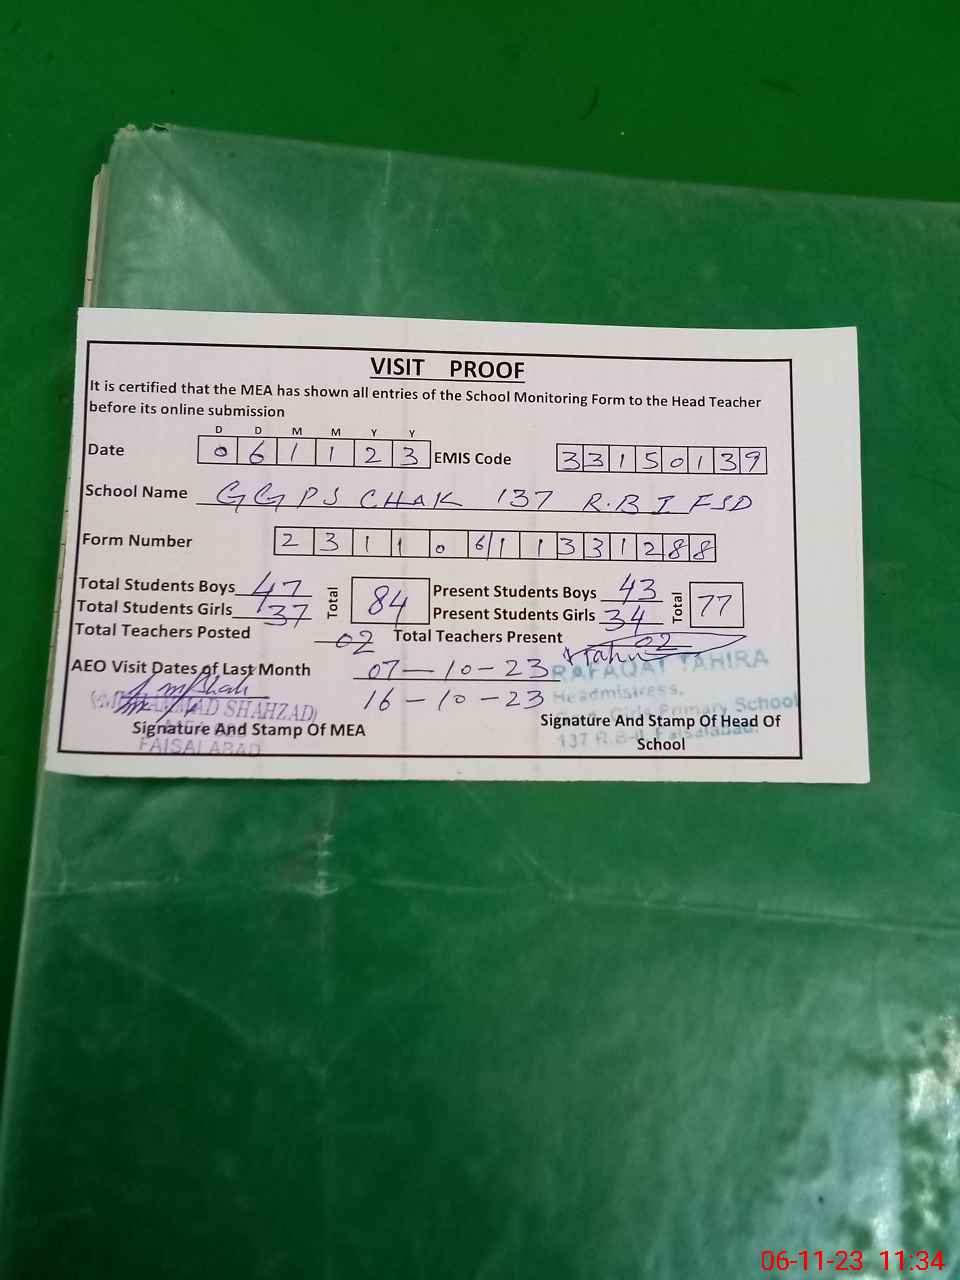 VISIT PROOF
It is certified that the MEA has shown all entries of the School Monitoring Form to the Head Teacher
before its online submission
D D M M Y Y
Date 0 6 1 1 2 3 EMIS Code 3 3 1 5 0 1 3 9
School Name GGPS CHAK 137 R.B I FSD
Form Number 2 3 1 1 0 6 1 1 3 3 1 2 8 8
Total Students Boys 47 Total 84 Present Students Boys 43 Total 77
Total Students Girls 37 Present Students Girls 34
Total Teachers Posted 02 Total Teachers Present 02
AEO Visit Dates of Last Month 07-10-23
16-10-23
RAFAQAT TAHIRA
Headmistress,
Girls Primary School
137 R.B-II, Faisalabad.
SHAHZAD)
FAISALABAD
Signature And Stamp Of MEA
Signature And Stamp Of Head Of
School
06-11-23 11:34